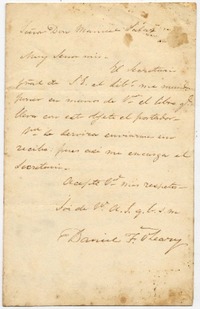 Señor Don Manuel
Muy Señor mio.
El Secretario
Gral de S. E. el Libr. me manda
poner en manos de V. el libro q.
lleva con este objeto el portador.
V. se servirá enviarme un
recibo, pues así me encarga el
Secretario.
Acepte V. mis respetos
Soi de V. A. S. q. b. s. m.
Daniel F. O'Leary